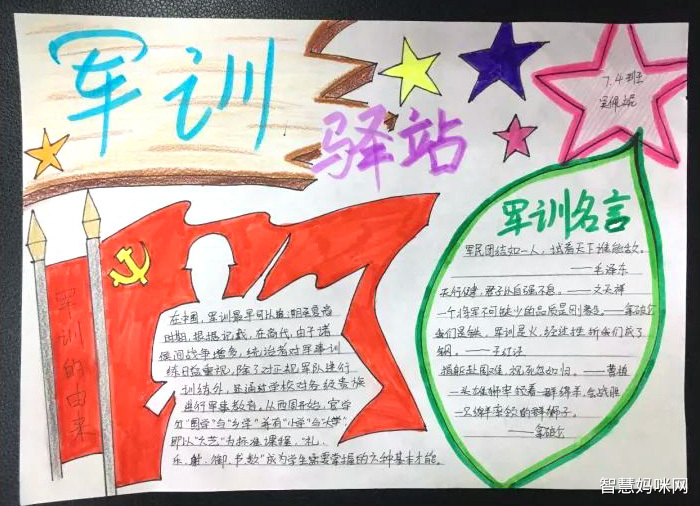 军训
驿站
7.4班
军训的由来
在中国，军训最早可以追溯至夏商
时期，根据记载，在商代，由于诸
侯间战争增多，统治者对军事训
练日益重视，除了对正规军队进行
训练外，还通过学校对各级贵族
进行军事教育。从西周开始，官学
分"国学"与"乡学"并有"小学"与"大学"
即以"六艺"为标准课程，"礼、
乐、射、御、书、数"成为学生需要掌握的六种基本才能。
军训名言
军民团结如一人，试看天下谁能敌。
——毛泽东
天行健，君子以自强不息。——文天祥
一个将军不可缺少的品质是刚毅。——拿破仑
我们是铁，军训是火，经过性折我们成了
钢。
捐躯赴国难，视死忽如归。——曹植
一头雄狮率领着一群绵羊，会战胜
一只绵羊率领的群狮子。
——拿破仑
智慧妈咪网